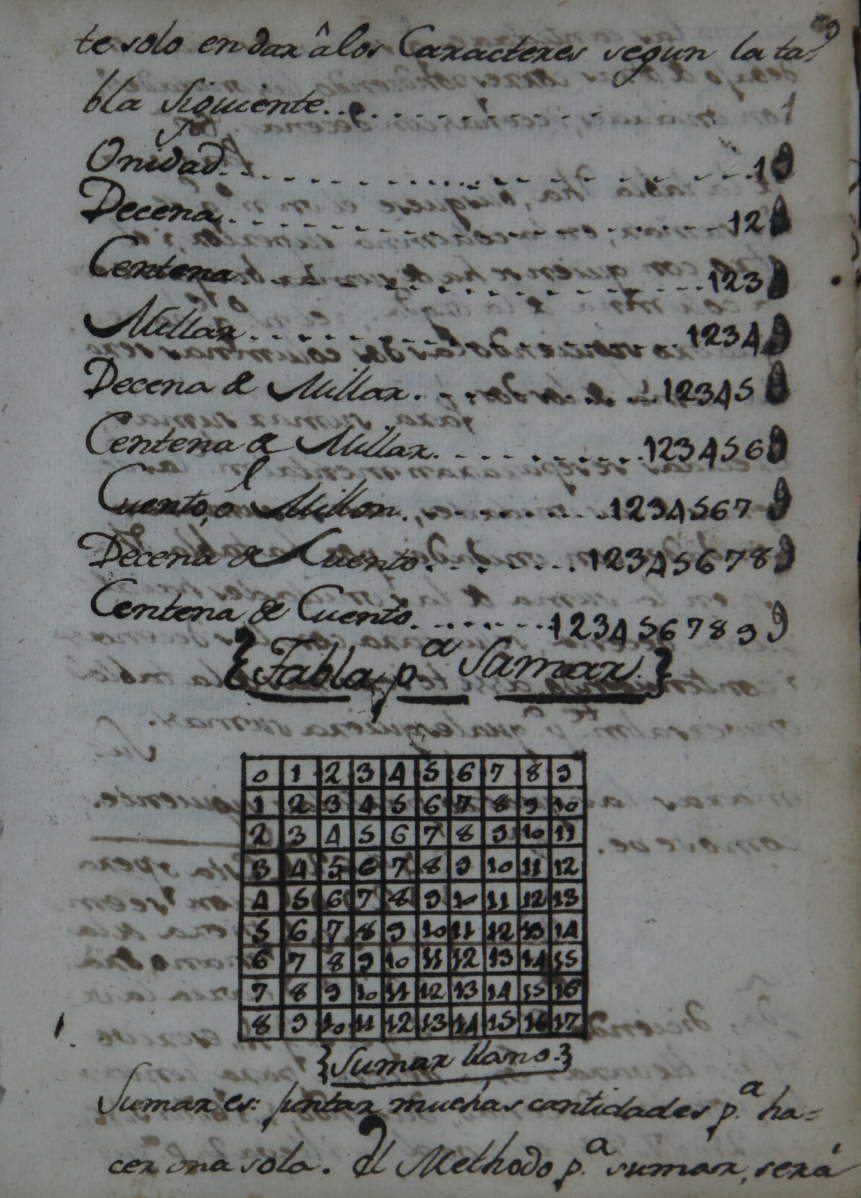 te solo en dar â los Caracteres segun la ta-
bla Siguiente
Unidad 1
Decena 12
Centena 123
Millar 1234
Decena de Millar 12345
Centena de Millar 123456
Cuento, ó Millon 1234567
Decena de Cuento 12345678
Centena de Cuento 123456789
{Tabla p.a Sumar}
0 1 2 3 4 5 6 7 8 9
1 2 3 4 5 6 7 8 9 10
2 3 4 5 6 7 8 9 10 11
3 4 5 6 7 8 9 10 11 12
4 5 6 7 8 9 10 11 12 13
5 6 7 8 9 10 11 12 13 14
6 7 8 9 10 11 12 13 14 15
7 8 9 10 11 12 13 14 15 16
8 9 10 11 12 13 14 15 16 17
{Sumar llano.}
Sumar es: juntar muchas cantidades p.a ha=
cer una sola. El Methodo p.a sumar, será